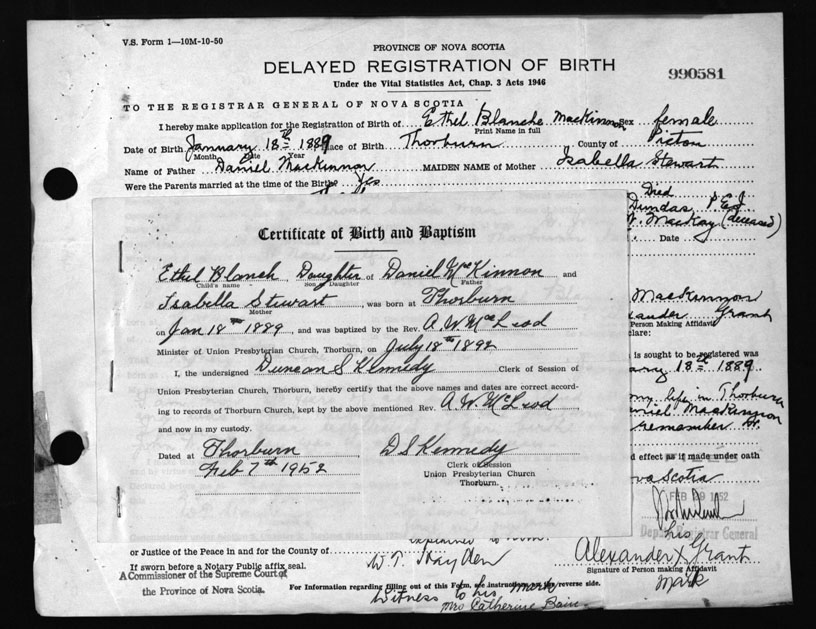 V.S. Form 1—10M-10-50
PROVINCE OF NOVA SCOTIA
DELAYED REGISTRATION OF BIRTH
990581
Under the Vital Statistics Act, Chap. 3 Acts 1946
TO THE REGISTRAR GENERAL OF NOVA SCOTIA
I hereby make application for the Registration of Birth of Ethel Blanche MacKinnon Sex female
Print Name in full
Date of Birth January 18th 1889 Place of Birth Thorburn County of Pictou
Month Date Year
Name of Father Daniel MacKinnon MAIDEN NAME of Mother Isabella Stewart
Were the Parents married at the time of the Birth? Yes
Died
Dundas P.E.I.
MacKay (deceased)
Date
Certificate of Birth and Baptism
Ethel Blanch Daughter of Daniel McKinnon and
Child's name Son or Daughter Father
Isabella Stewart, was born at Thorburn
Mother
on Jan 18th 1889, and was baptized by the Rev. A. W. McLeod
Minister of Union Presbyterian Church, Thorburn, on July 18th 1892
I, the undersigned Duncan S Kennedy Clerk of Session of
Union Presbyterian Church, Thorburn, hereby certify that the above names and dates are correct accord-
ing to records of Thorburn Church, kept by the above mentioned Rev. A. W. McLeod
and now in my custody.
Dated at Thorburn D S Kennedy
Feb 7th 1952
Clerk of Session
Union Presbyterian Church
Thorburn.
MacKinnon
xander Grant
Person Making Affidavit
lare:
is sought to be registered was
ary 18th 1889
my life in Thorburn
niel MacKinnon
remember
d effect as if made under oath
va Scotia
FEB 1952
Deputy Registrar General
explained to him
or Justice of the Peace in and for the County of
W. T. Hayden
his
Alexander X Grant
mark
Signature of Person making Affidavit
If sworn before a Notary Public affix seal.
A Commissioner of the Supreme Court of
the Province of Nova Scotia.
For Information regarding filling out of this Form, see instructions on the reverse side.
Witness to his mark
Mrs Catherine Bain